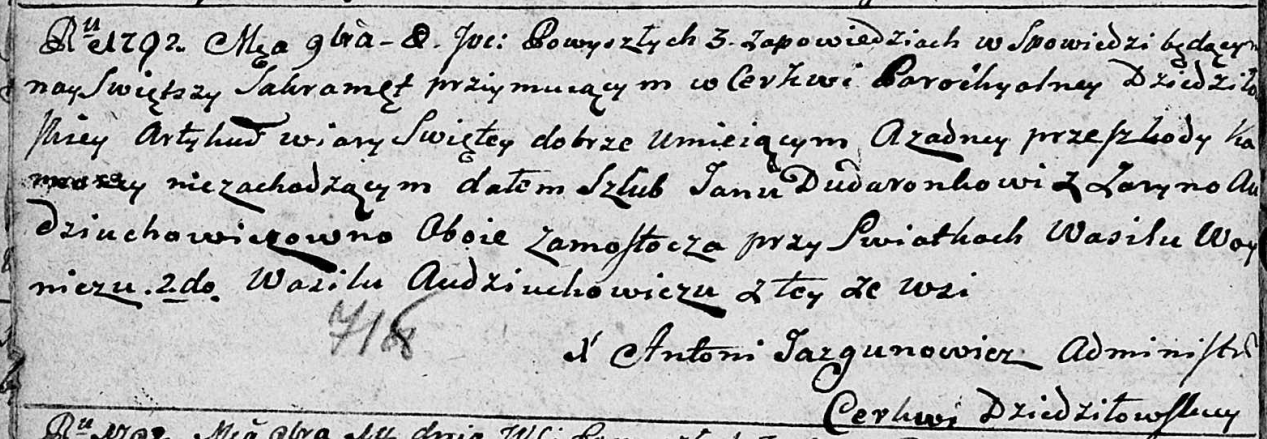 Ru 1792 Mca 9bra - 8. Po wyszłych 3. zapowiedziach w Spowiedzi będącym
nayswiętszy Sakramęt przymuiącym w Cerkwi Parochyalney Dziedziło
skiey Artykuł wiary Swiętey dobrze umieiącym A zadney przeszkody ka
niezachodzącym dałem Szlub Janu Dudaronkowi z Zaryno Au
dziuchowiczowno Oboie z amostocza przy Swiatkach Wasilu Woy
niczu. 2do. Wasilu Audziuchowiczu z tey ze wsi
718
X Antoni Jazgunowicz Administr
Cerkwi Dziedziłowskiey
Ru 1792 Mca dnia